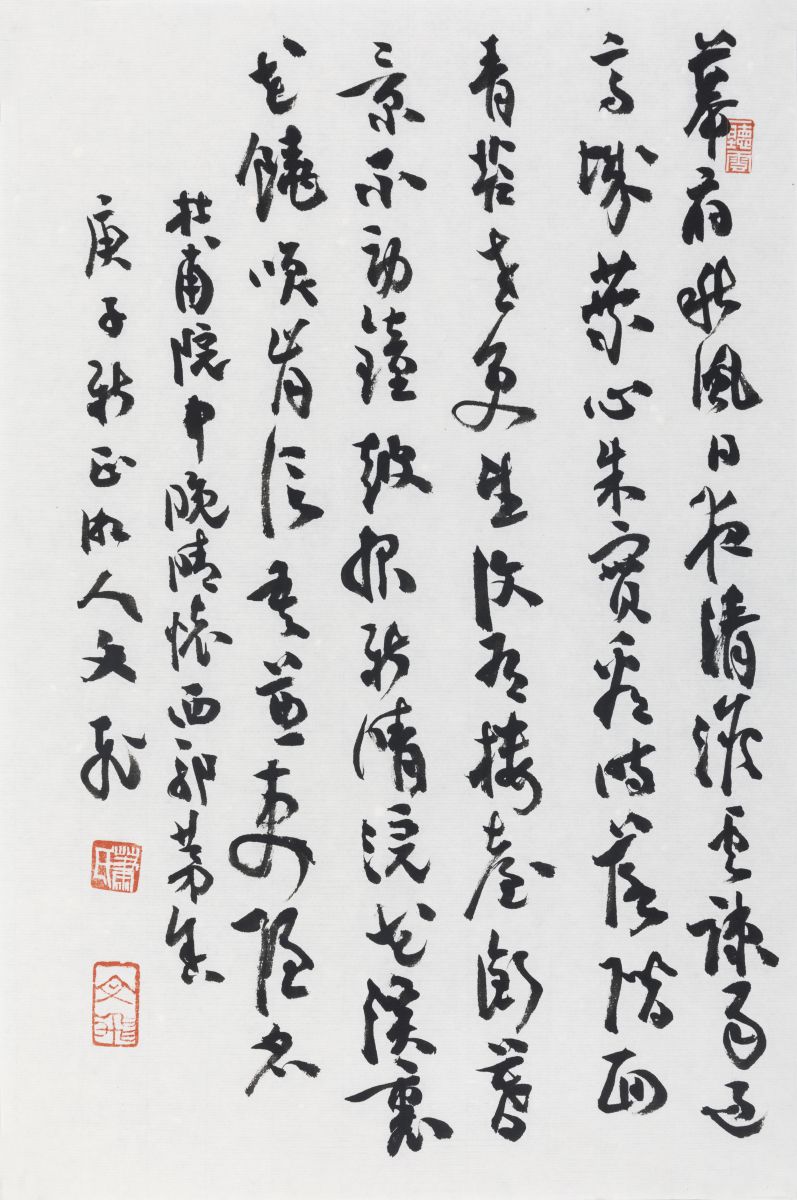 聽雲
幕府秋風日夜清澹雲疎雨過
高城葉心朱實看時落階面
青苔老更生復有樓臺銜暮
景不勞鐘鼓報新晴浣花溪裏
花饒咲肯信吾兼吏隱名
杜甫院中晚晴懷西郭茅舍
庚子新正湘人文飛
蕭氏
文飛